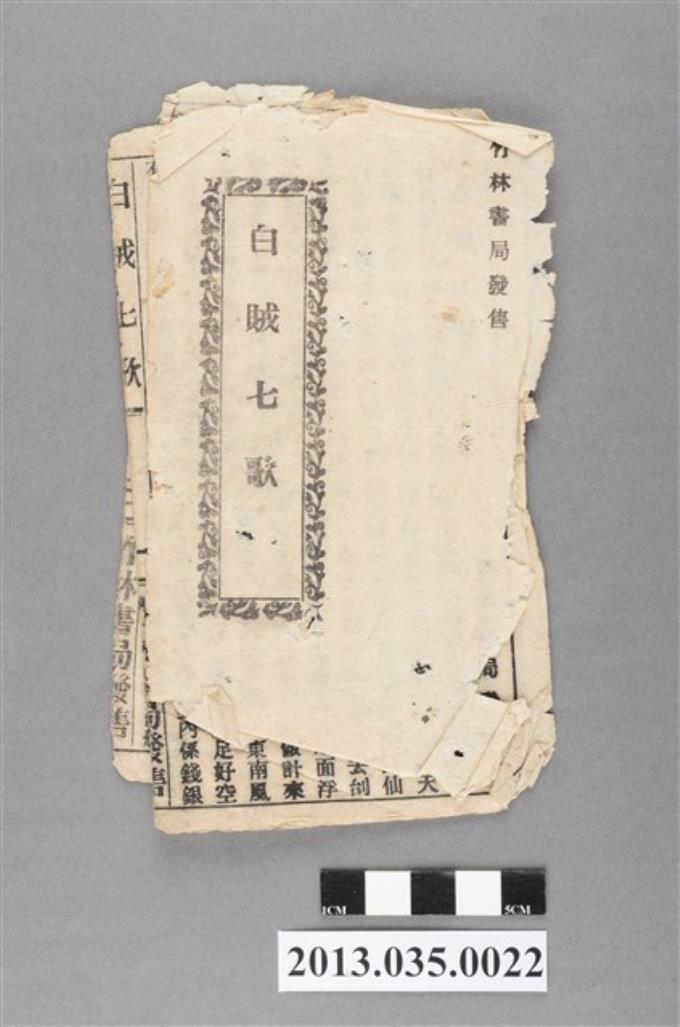 竹林書局發售
白賊七歌
局
天
仙
去刣
面浮
做計來
東南風
足好空
內係錢銀
白賊七歌
竹林書局發售
局發售
1CM
5CM
2013.035.0022